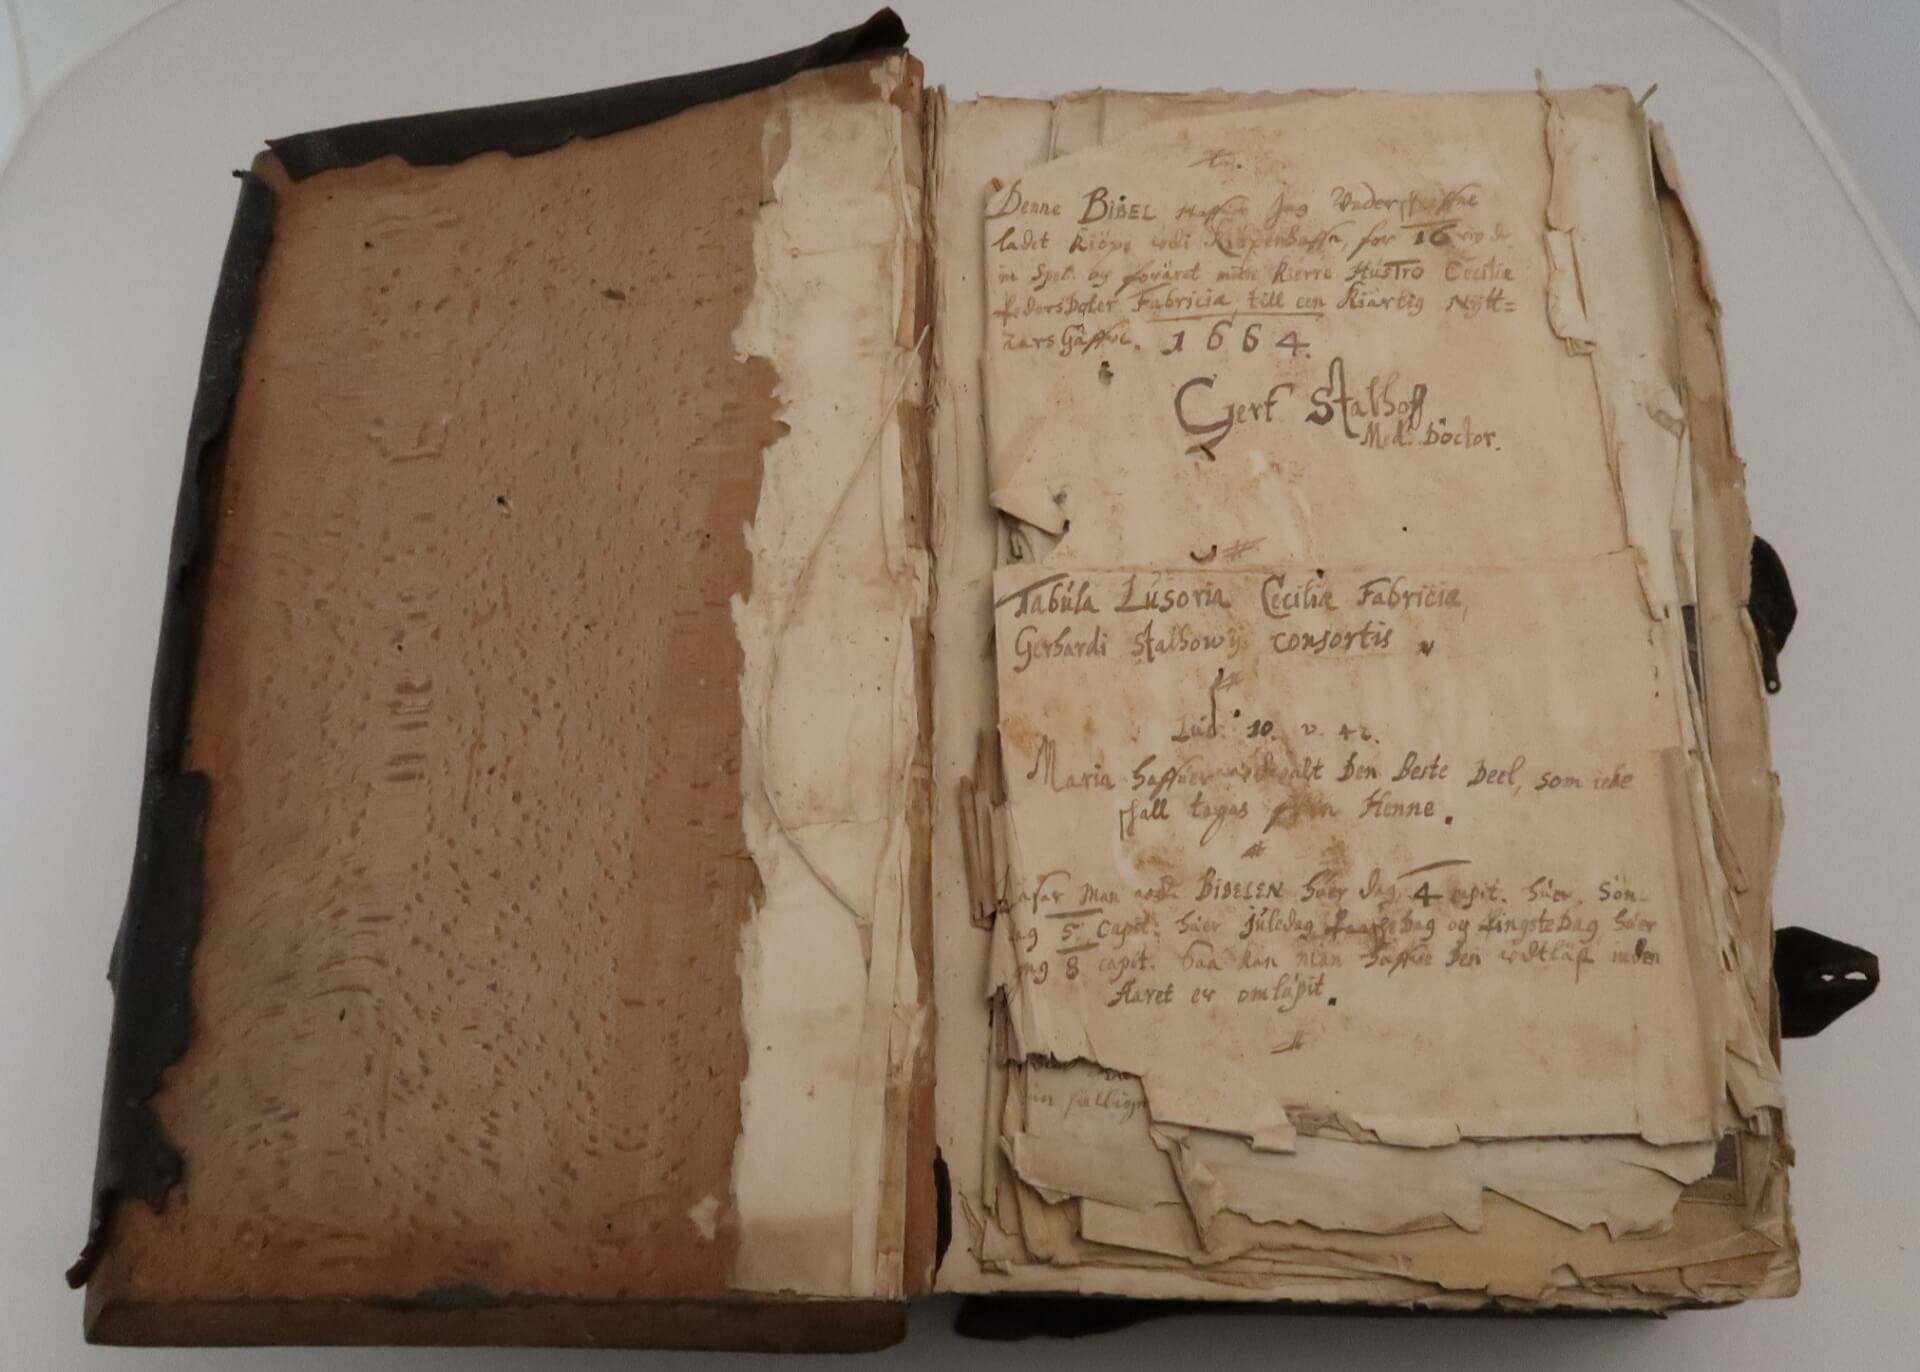 Denne BIBEL Haffuer Jag Underskreffne
ladet Kiöpe udi Kiöpenhaffn, for 16
in Spet. og foräret min Kierre HUSTRO Cecilia
Pedersdoter Fabricia, till een Kiärlig Nÿtt=
aars Gäffue. 1664.
Gert Stalhoff
Med. Doctor.
Tabúla Lúsoria Cecilie Fabriciæ,
Gerhardi Stalhowij consortis
Lúc. 10. v. 42.
Maria haffuer udualt den Beste Deel, som icke
skall tagas från Henne.
Läsar Man udi BIBELEN húer dag, 4 capit. húer Sön-
dag 5. Capit. húer júledag Paaskedag og Pingstedag, húer
dag 8 capit. Saa kan man haffue den udtläst inden
Aaret er omläpit.